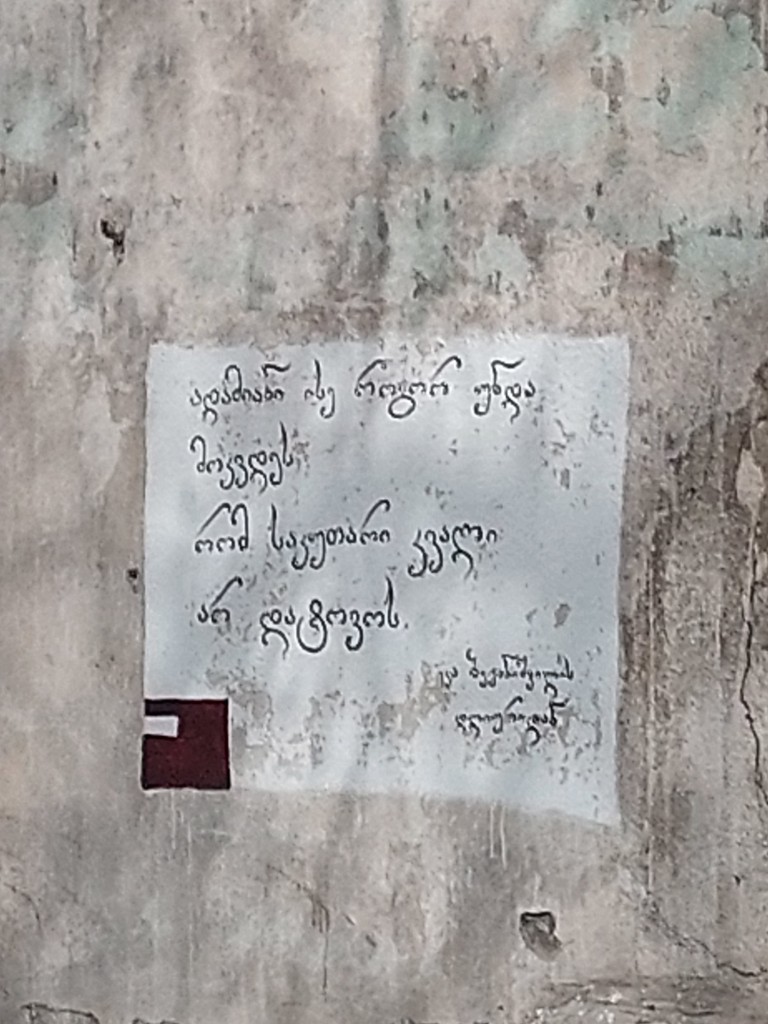 ადამიანი ისე როგორ უნდა
მოკვდეს,
რომ საკუთარი კვალი
არ დატოვოს.
დღიურიდან